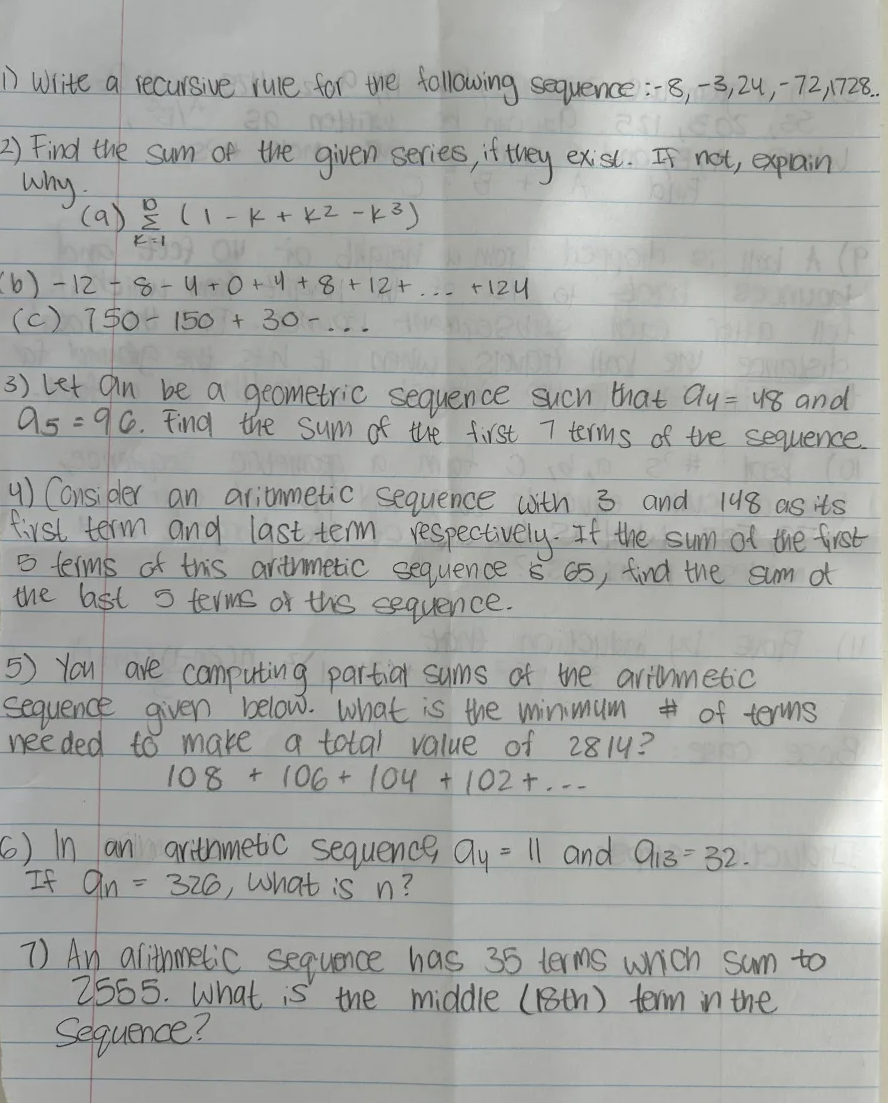 1) Write a recursive rule for the following sequence :- 8, -3, 24, -72, 1728..
2) Find the sum of the given series, if they exist. If not, explain
why.
(a) 10 Σ k=1 (1 - k + k2 - k3)
(b) -12 - 8 - 4 + 0 + 4 + 8 + 12 + ... + 124
(c) 750 - 150 + 30 - ...
3) Let an be a geometric sequence such that a4 = 48 and
a5 = 96. Find the sum of the first 7 terms of the sequence.
4) Consider an arithmetic sequence with 3 and 148 as its
first term and last term respectively. If the sum of the first
5 terms of this arithmetic sequence is 65, find the sum of
the last 5 terms of ths sequence.
5) You are computing partial sums of the arithmetic
sequence given below. What is the minimum # of terms
needed to make a total value of 2814?
108 + 106 + 104 + 102 + ...
6) In an arithmetic sequence, a4 = 11 and a13 = 32.
If an = 326, what is n?
7) An arithmetic sequence has 35 terms which sum to
2555. What is the middle (18th) term in the
sequence?